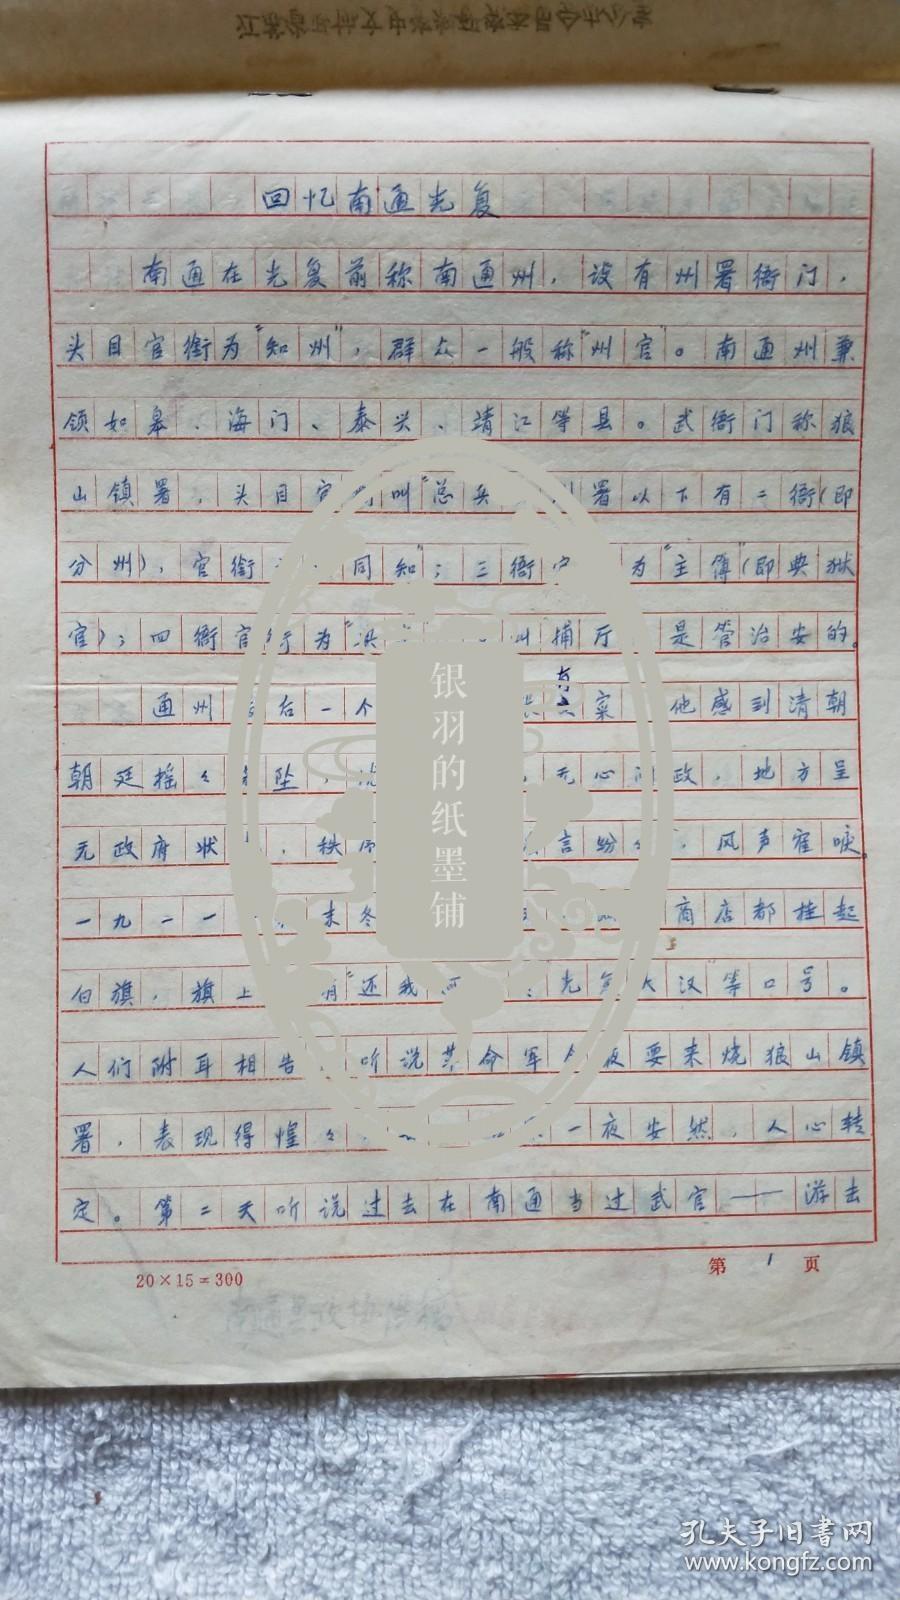 回忆南通光复
南通在光复前称南通州，设有州署衙门，
头目官衔为“知州”，群众一般称“州官”。南通州兼
领如皋、海门、泰兴、靖江等县。武衙门称狼
山镇署，头目官叫“总兵署以下有二衙（即
分州），官衔同知”；三衙为“主傅”（即典狱
官）；四衙官为“捕厅是管治安的。
通州后一个寀他感到清朝
朝廷摇々坠，无心政，地方呈
无政府状，秩言纷，风声雀唳。
一九一一末冬商店都挂起
白旗，旗上还我光复大汉”等口号。
人们附耳相告听说革命军夜要来烧狼山镇
署，表现得惶々一夜安然，人心转
定。第二天听说过去在南通当过武官——游击
20×15=300
第1页
南通县政协供稿
银羽的纸墨铺
孔夫子旧书网
www.kongfz.com